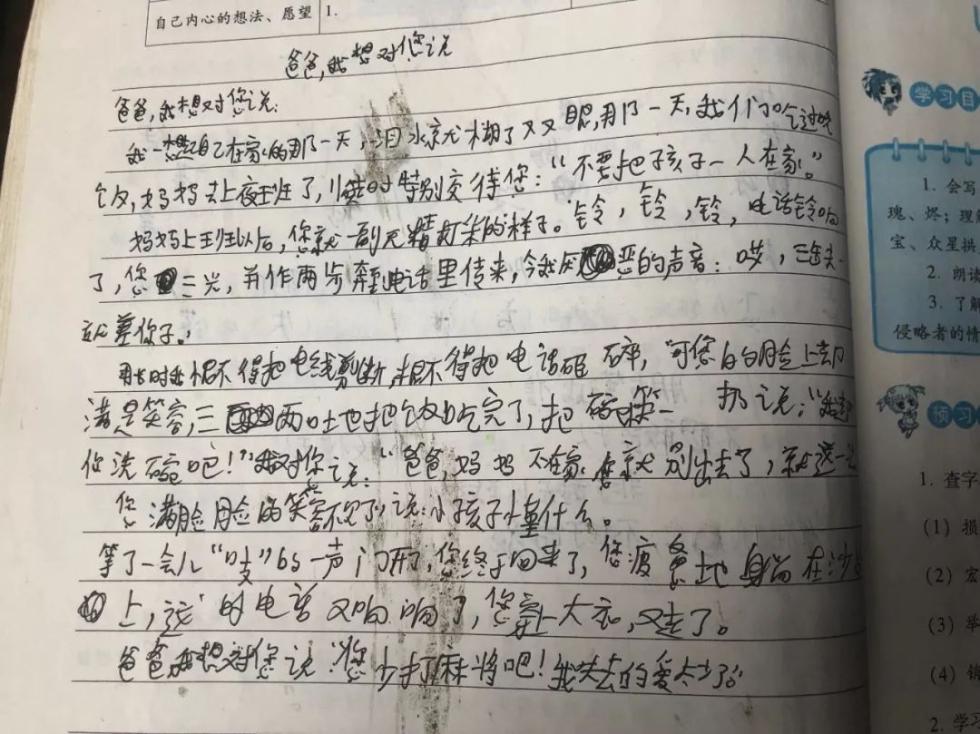 自己内心的想法、愿望 1.
爸爸,我想对您说
爸爸,我想对您说:
我一想起自己在家的那一天,泪水就模糊了双眼,那一天,我们吃过晚
饭,妈妈去上夜班了,临时特别交待您:“不要把孩子一人在家。”
妈妈上班以后,您就一副无精打采的样子。铃,铃,铃,电话铃响
了,您三兴,并作两步奔到电话里传来,令我厌恶的声音:哎,三缺一
就差你了。
那时我恨不得把电线剪断,恨不得把电话砸碎,可您的脸上却
满是笑容,三两口土地把饭吃完了,把碗筷一扔说:“我
你洗碗吧!”我对你说:“爸爸,妈妈不在家,您就别出去了,
您满脸脸的笑容不见了,说:小孩子懂什么。
等了一会儿“吱”的一声门开了,您终于回来了,您疲惫地躺在沙
上,该的电话又响响了,您穿上大衣,又走了。
爸爸,我想对您说:“您少打麻将吧!我失去的爱太多了。
学习目
1. 会写
瑰、烬;理
宝、众星拱
2. 朗读
3. 了解
侵略者的情
预习
1. 查字
(1) 损
(2) 宏
(3) 举
(4) 销
2. 学习